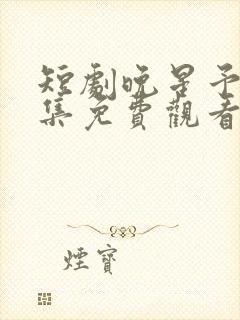 短劇晚星予
集免費觀看
煙寶